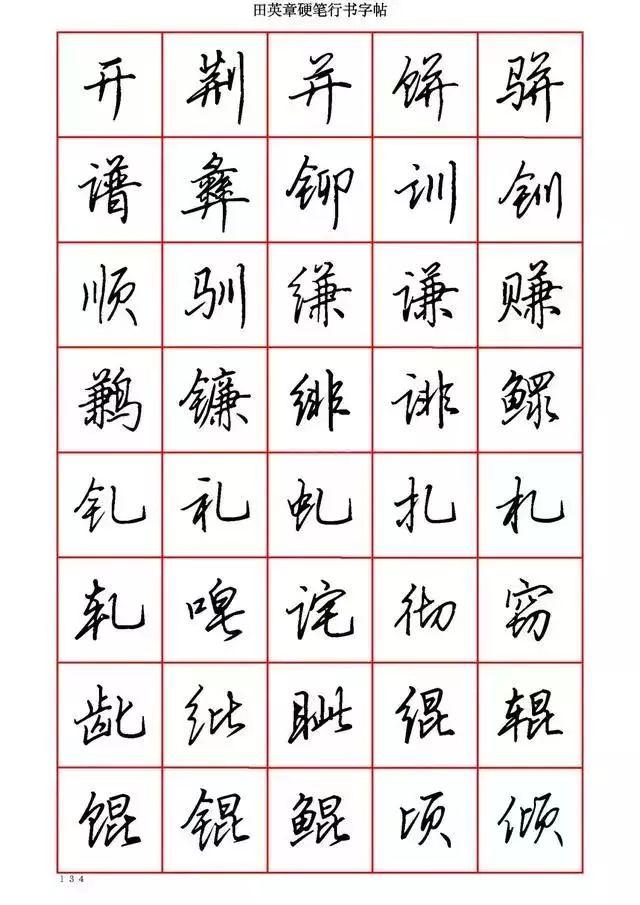 田英章硬笔行书字帖
开 荆 并 饼 骈
谱 彝 铆 训 钏
顺 驯 缣 谦 赚
鹣 镰 绯 诽 鳏
钆 礼 虬 扎 札
轧 唣 诧 彻 窃
龀 纰 眦 绲 辊
馄 锟 鲲 顷 倾
134